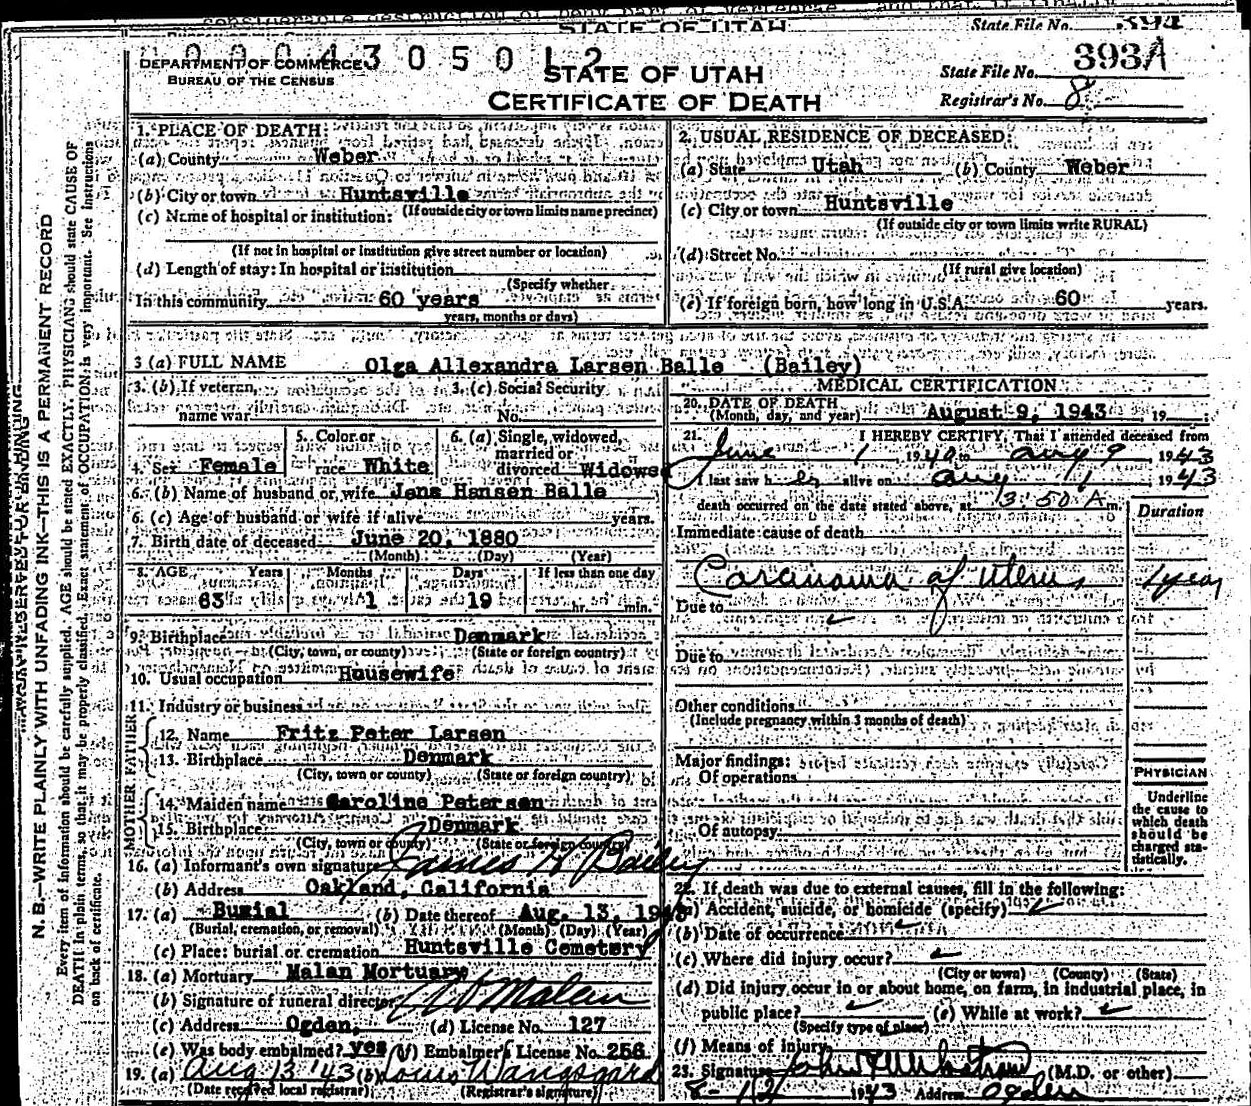 STATE OF UTAH
State File No. 394
0 0 0 4 3 0 5 0 1 2
DEPARTMENT OF COMMERCE
BUREAU OF THE CENSUS
STATE OF UTAH
CERTIFICATE OF DEATH
State File No. 393A
Registrar's No. 8
N. B.—WRITE PLAINLY WITH UNFADING INK—THIS IS A PERMANENT RECORD
Every item of information should be carefully supplied. AGE should be stated EXACTLY. PHYSICIAN should state CAUSE OF
DEATH in plain terms, so that it may be properly classified. Exact statement of OCCUPATION is very important. See Instructions
on back of certificate.
1. PLACE OF DEATH:
(a) County Weber
(b) City or town Huntsville
(If outside city or town limits name precinct)
(c) Name of hospital or institution:
(If not in hospital or institution give street number or location)
(d) Length of stay: In hospital or institution
(Specify whether
In this community 60 years
years, months or days)
2. USUAL RESIDENCE OF DECEASED:
(a) State Utah (b) County Weber
(c) City or town Huntsville
(If outside city or town limits write RURAL)
(d) Street No.
(If rural give location)
(e) If foreign born, how long in U.S.A. 60 years.
3 (a) FULL NAME Olga Allexandra Larsen Balle (Bailey)
3. (b) If veteran, name war
3. (c) Social Security No.
4. Sex Female
5. Color or race White
6. (a) Single, widowed, married or divorced Widowed
6. (b) Name of husband or wife Jens Hansen Balle
6. (c) Age of husband or wife if alive years.
7. Birth date of deceased June 20, 1880
(Month) (Day) (Year)
8. AGE Years Months Days If less than one day
63 1 19 hr. min.
9. Birthplace Denmark
(City, town, or county) (State or foreign country)
10. Usual occupation Housewife
11. Industry or business
FATHER
12. Name Fritz Peter Larsen
13. Birthplace Denmark
(City, town or county) (State or foreign country)
MOTHER
14. Maiden name Caroline Petersen
15. Birthplace Denmark
(City, town or county) (State or foreign country)
16. (a) Informant's own signature James H Bailey
(b) Address Oakland, California
17. (a) Burial (b) Date thereof Aug. 13, 1943
(Burial, cremation, or removal) (Month) (Day) (Year)
(c) Place: burial or cremation Huntsville Cemetery
18. (a) Mortuary Malan Mortuary
(b) Signature of funeral director Malan
(c) Address Ogden, (d) License No. 127
(e) Was body embalmed? yes (f) Embalmer's License No. 256
19. (a) Aug 13 '43 (b) Louis Wangsgard
(Date received local registrar) (Registrar's signature)
MEDICAL CERTIFICATION
20. DATE OF DEATH August 9, 1943 19
(Month, day, and year)
21. I HEREBY CERTIFY, That I attended deceased from
June 1 1940 to aug 9, 1943
I last saw her alive on aug 1 1943
death occurred on the date stated above, at 3:50 A m.
Duration
Immediate cause of death
Carcinoma of uterus 1 year
Due to
Due to
Other conditions
(Include pregnancy within 3 months of death)
Major findings:
Of operations
Of autopsy
PHYSICIAN
Underline
the cause to
which death
should be
charged sta-
tistically.
22. If death was due to external causes, fill in the following:
(a) Accident, suicide, or homicide (specify)
(b) Date of occurrence
(c) Where did injury occur?
(City or town) (County) (State)
(d) Did injury occur in or about home, on farm, in industrial place, in
public place? (e) While at work?
(Specify type of place)
(f) Means of injury
23. Signature John (M.D. or other)
8-12 1943 Address Ogden